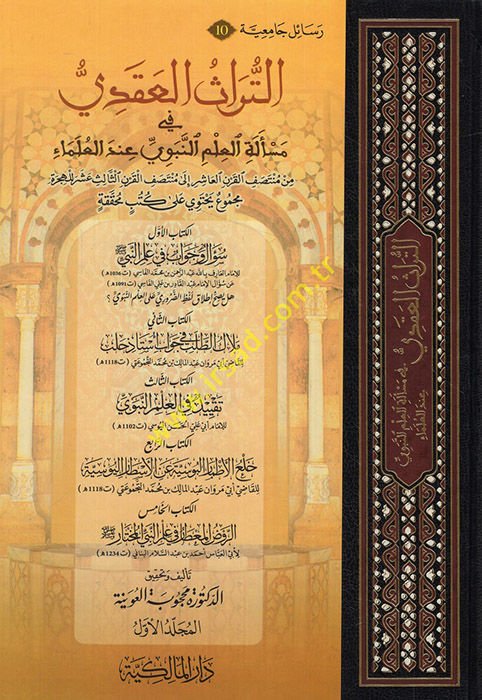 رسائل جامعية 10
التُّراثُ العَقَدِيُّ
فِي
مَسْأَلَةِ العِلْمِ النَّبَوِيِّ عِندَ العُلَمَاءِ
مِنْ مُنْتَصَفِ القَرْنِ العَاشِرِ إِلَى مُنْتَصَفِ القَرْنِ الثَّالِثَ عَشَرَ لِلْهِجْرَةِ
مَجْمُوعٌ يَحْتَوِي عَلَى كُتُبٍ مُحَقَّقَةٍ
الكتاب الأول
سُؤَالٌ وَجَوَابٌ فِي عِلْمِ النَّبِيِّ ﷺ
للإمام العارف بالله عبد الرحمن بن محمد الفاسي (ت1036هـ)
عن سؤال الإمام عبد القادر بن علي الفاسي (ت1091هـ)
هل يصح إطلاق لفظ الضروري على العلم النبوي؟
الكتاب الثاني
مَلَاكُ الطَّلَبِ فِي جَوَابِ أُسْتَاذِ حَلَب
للقاضي أبي مروان عبد المالك بن محمد التجموعتي (ت1118هـ)
الكتاب الثالث
تَقْيِيدٌ فِي العِلْمِ النَّبَوِي
للإمام أبي علي الحسن اليوسي (ت1102هـ)
الكتاب الرابع
خَلْعُ الأَطْمَارِ البُوسِيَّةِ عَنِ الأَسْطَارِ اليُوسِيَّةِ
للقاضي أبي مروان عبد المالك بن محمد التجموعتي (ت1118هـ)
الكتاب الخامس
الرَّوْضُ المِعْطَارُ فِي عِلْمِ النَّبِيِّ المُخْتَارِ ﷺ
لأبي العباس أحمد بن عبد السلام البناني (ت1234هـ)
تأليف وتحقيق
الدكتورة محجوبة العوينة
المجلد الأول
دار المالكية
التراث العقدي
في مسألة العلم النبوي
عند العلماء